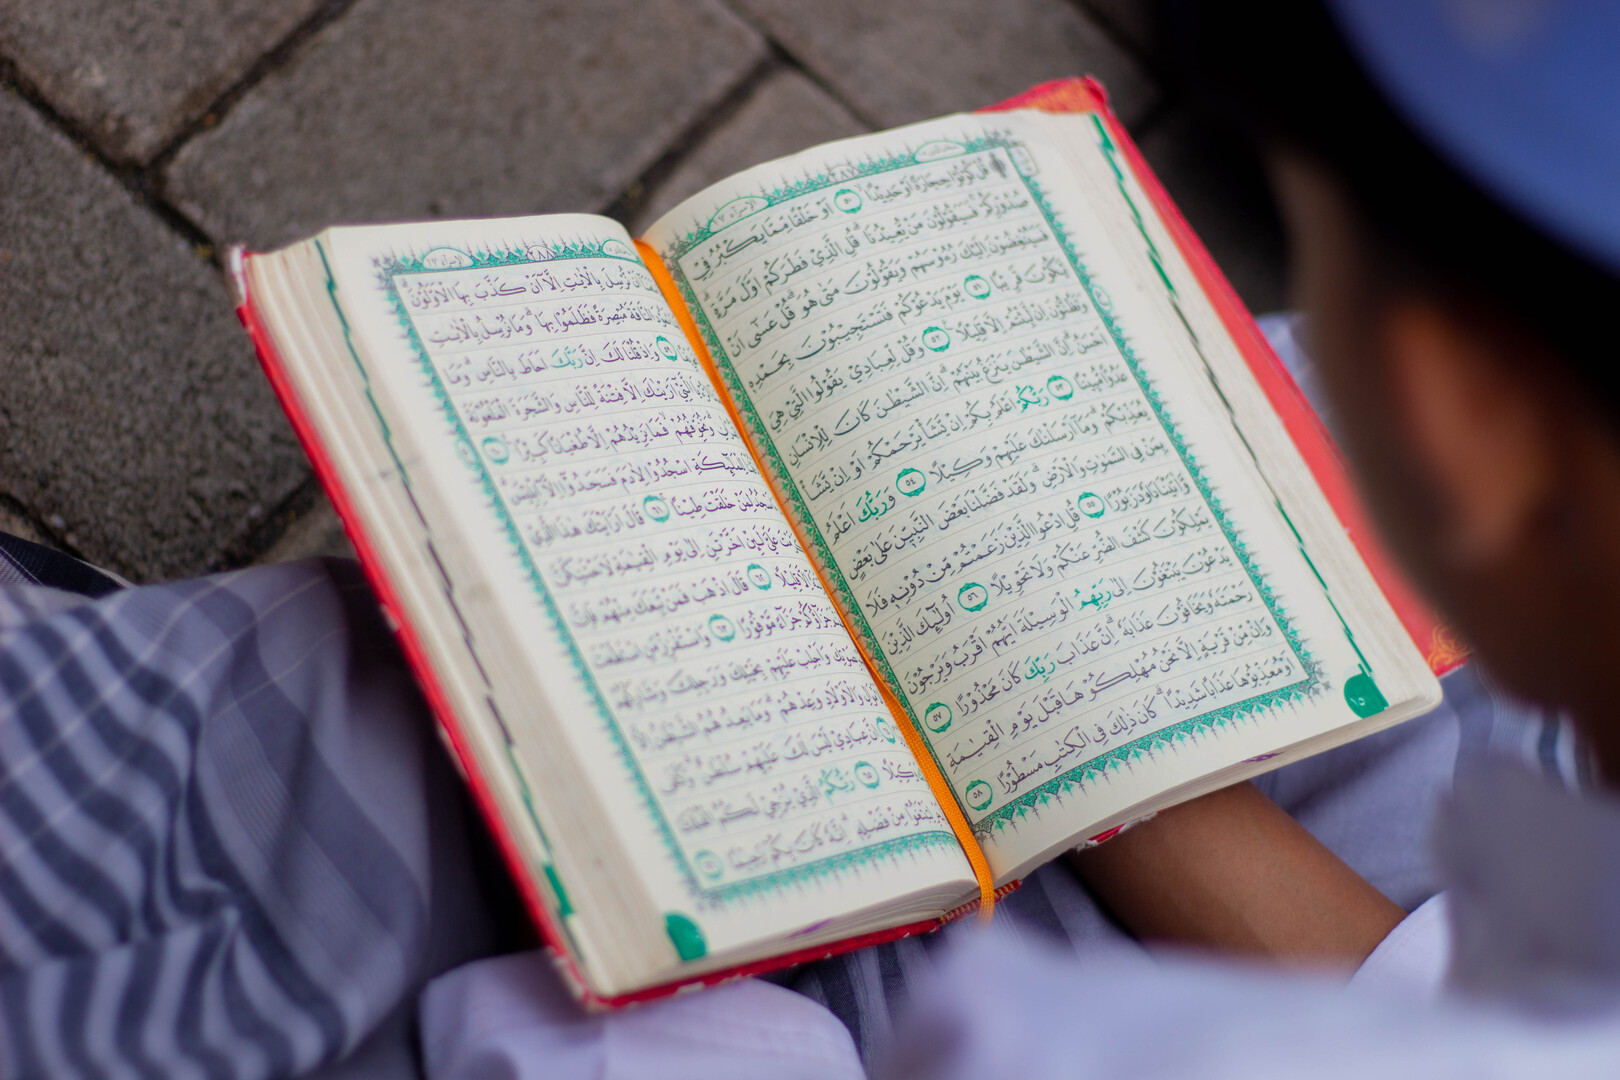 الإسراء ١٧ ٢٨٧
قُلْ كُوْنُوْا حِجَارَةً اَوْ حَدِيْدًاۙ ٥٠ اَوْ خَلْقًا مِّمَّا يَكْبُرُ فِيْ
صُدُوْرِكُمْۚ فَسَيَقُوْلُوْنَ مَنْ يُّعِيْدُنَاۗ قُلِ الَّذِيْ فَطَرَكُمْ اَوَّلَ مَرَّةٍۚ
فَسَيُنْغِضُوْنَ اِلَيْكَ رُءُوْسَهُمْ وَيَقُوْلُوْنَ مَتٰى هُوَۗ قُلْ عَسٰٓى اَنْ
يَّكُوْنَ قَرِيْبًا ٥١ يَوْمَ يَدْعُوْكُمْ فَتَسْتَجِيْبُوْنَ بِحَمْدِهٖ
وَتَظُنُّوْنَ اِنْ لَّبِثْتُمْ اِلَّا قَلِيْلًا ٥٢ وَقُلْ لِّعِبَادِيْ يَقُوْلُوا الَّتِيْ هِيَ
اَحْسَنُۗ اِنَّ الشَّيْطٰنَ يَنْزَغُ بَيْنَهُمْۗ اِنَّ الشَّيْطٰنَ كَانَ لِلْاِنْسَانِ
عَدُوًّا مُّبِيْنًا ٥٣ رَبُّكُمْ اَعْلَمُ بِكُمْۗ اِنْ يَّشَأْ يَرْحَمْكُمْ اَوْ اِنْ يَّشَأْ
يُعَذِّبْكُمْۗ وَمَآ اَرْسَلْنٰكَ عَلَيْهِمْ وَكِيْلًا ٥٤ وَرَبُّكَ اَعْلَمُ
بِمَنْ فِى السَّمٰوٰتِ وَالْاَرْضِۗ وَلَقَدْ فَضَّلْنَا بَعْضَ النَّبِيّٖنَ عَلٰى بَعْضٍ
وَّاٰتَيْنَا دَاوٗدَ زَبُوْرًا ٥٥ قُلِ ادْعُوا الَّذِيْنَ زَعَمْتُمْ مِّنْ دُوْنِهٖ فَلَا
يَمْلِكُوْنَ كَشْفَ الضُّرِّ عَنْكُمْ وَلَا تَحْوِيْلًا ٥٦ اُولٰۤىِٕكَ الَّذِيْنَ
يَدْعُوْنَ يَبْتَغُوْنَ اِلٰى رَبِّهِمُ الْوَسِيْلَةَ اَيُّهُمْ اَقْرَبُ وَيَرْجُوْنَ
رَحْمَتَهٗ وَيَخَافُوْنَ عَذَابَهٗۗ اِنَّ عَذَابَ رَبِّكَ كَانَ مَحْذُوْرًا ٥٧
وَاِنْ مِّنْ قَرْيَةٍ اِلَّا نَحْنُ مُهْلِكُوْهَا قَبْلَ يَوْمِ الْقِيٰمَةِ
اَوْ مُعَذِّبُوْهَا عَذَابًا شَدِيْدًاۗ كَانَ ذٰلِكَ فِى الْكِتٰبِ مَسْطُوْرًا ٥٨
١٥
الإسراء ١٧ ٢٨٨
اَنْ نُّرْسِلَ بِالْاٰيٰتِ اِلَّآ اَنْ كَذَّبَ بِهَا الْاَوَّلُوْنَۗ
النَّاقَةَ مُبْصِرَةً فَظَلَمُوْا بِهَاۗ وَمَا نُرْسِلُ بِالْاٰيٰتِ
٥٩ وَاِذْ قُلْنَا لَكَ اِنَّ رَبَّكَ اَحَاطَ بِالنَّاسِۗ وَمَا
الَّتِيْٓ اَرَيْنٰكَ اِلَّا فِتْنَةً لِّلنَّاسِ وَالشَّجَرَةَ الْمَلْعُوْنَةَ
وَنُخَوِّفُهُمْۙ فَمَا يَزِيْدُهُمْ اِلَّا طُغْيَانًا كَبِيْرًا ٦٠
لِلْمَلٰۤىِٕكَةِ اسْجُدُوْا لِاٰدَمَ فَسَجَدُوْٓا اِلَّآ اِبْلِيْسَ
لِمَنْ خَلَقْتَ طِيْنًا ٦١ قَالَ اَرَاَيْتَكَ هٰذَا الَّذِيْ
عَلَيَّ لَىِٕنْ اَخَّرْتَنِ اِلٰى يَوْمِ الْقِيٰمَةِ لَاَحْتَنِكَنَّ
اِلَّا قَلِيْلًا ٦٢ قَالَ اذْهَبْ فَمَنْ تَبِعَكَ مِنْهُمْ فَاِنَّ
جَزَاۤؤُكُمْ جَزَاۤءً مَّوْفُوْرًا ٦٣ وَاسْتَفْزِزْ مَنِ اسْتَطَعْتَ
بِصَوْتِكَ وَاَجْلِبْ عَلَيْهِمْ بِخَيْلِكَ وَرَجِلِكَ وَشَارِكْهُمْ
وَالْاَوْلَادِ وَعِدْهُمْۗ وَمَا يَعِدُهُمُ الشَّيْطٰنُ اِلَّا
اِنَّ عِبَادِيْ لَيْسَ لَكَ عَلَيْهِمْ سُلْطٰنٌۗ وَكَفٰى
وَكِيْلًا ٦٥ رَبُّكُمُ الَّذِيْ يُزْجِيْ لَكُمُ الْفُلْكَ
لِتَبْتَغُوْا مِنْ فَضْلِهٖۗ اِنَّهٗ كَانَ بِكُمْ رَحِيْمًا ٦٦